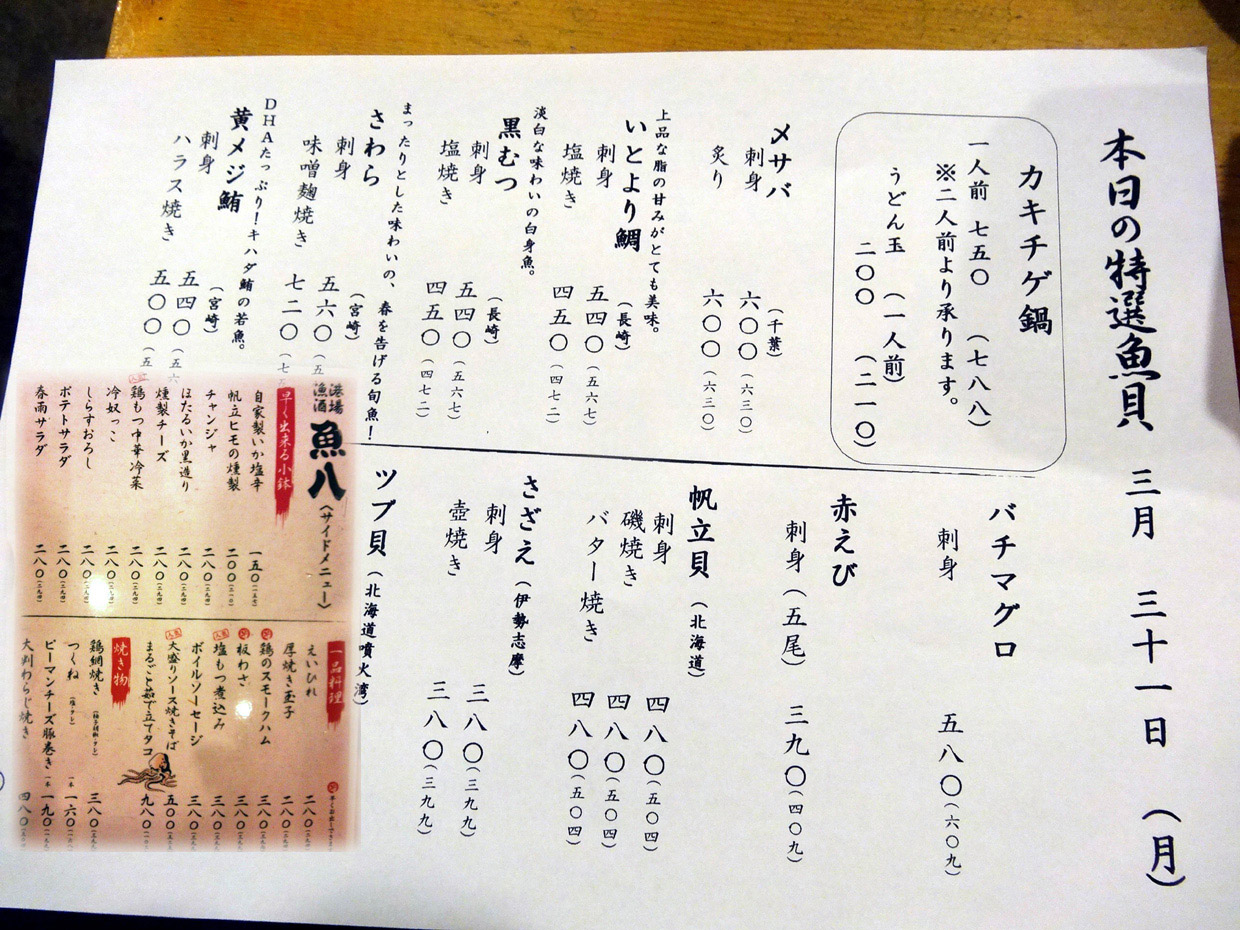 本日の特選魚貝 三月 三十一日 (月)
カキチゲ鍋
一人前 七五〇 (七八八)
※二人前より承ります。
うどん玉 (一人前)
二〇〇 (二一〇)
メサバ (千葉)
刺身 六〇〇(六三〇)
炙り 六〇〇(六三〇)
上品な脂の甘みがとても美味。
いとより鯛 (長崎)
刺身 五四〇(五六七)
塩焼き 四五〇(四七二)
淡白な味わいの白身魚。
黒むつ (長崎)
刺身 五四〇(五六七)
塩焼き 四五〇(四七二)
まったりとした味わいの、春を告げる旬魚!
さわら (宮崎)
刺身 五六〇(五
味噌麹焼き 七二〇(七
DHAたっぷり!キハダ鮪の若魚。
黄メジ鮪 (宮崎)
刺身 五四〇(五六
ハラス焼き 五〇〇(五
バチマグロ
刺身 五八〇(六〇九)
赤えび
刺身(五尾) 三九〇(四〇九)
帆立貝 (北海道)
刺身 四八〇(五〇四)
磯焼き 四八〇(五〇四)
バター焼き 四八〇(五〇四)
さざえ (伊勢志摩)
刺身 三八〇(三九九)
壺焼き 三八〇(三九九)
ツブ貝 (北海道噴火湾)
港場
漁酒
魚八 〈サイドメニュー〉
早く出来る小鉢
自家製いか塩辛 一五〇(一五七)
帆立ヒモの燻製 二〇〇(二一〇)
チャンジャ 二八〇(二九四)
ほたるいか黒造り 二八〇(二九四)
燻製チーズ 二八〇(二九四)
鶏もつ中華冷菜 二八〇(二九四)
冷奴っこ 二八〇(二九四)
しらすおろし 二八〇(二九四)
ポテトサラダ 二八〇(二九四)
春雨サラダ 二八〇(二九四)
一品料理
えいひれ 二八〇
厚焼き玉子 二八〇
鶏のスモークハム 三八〇
板わさ 三八〇
塩もつ煮込み 三八〇
ボイルソーセージ 三八〇
大盛りソース焼きそば 五〇〇
まるごと茹で立てタコ 九八〇
焼き物
鶏網焼き 三八〇
つくね 一本 一六〇
ピーマンチーズ豚巻き 一本 一九〇
大判わらじ焼き 四八〇